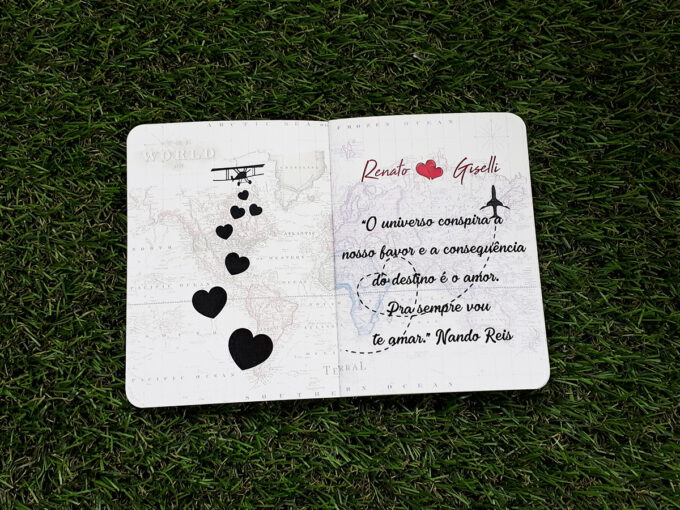 ARCTIC SEA
FROZEN OCEAN
WORLD
Renato Giselli
"O universo conspira a
nosso favor e a consequência
do destino é o amor.
Pra sempre vou
te amar." Nando Reis
PACIFIC OCEAN
SOUTHERN OCEAN